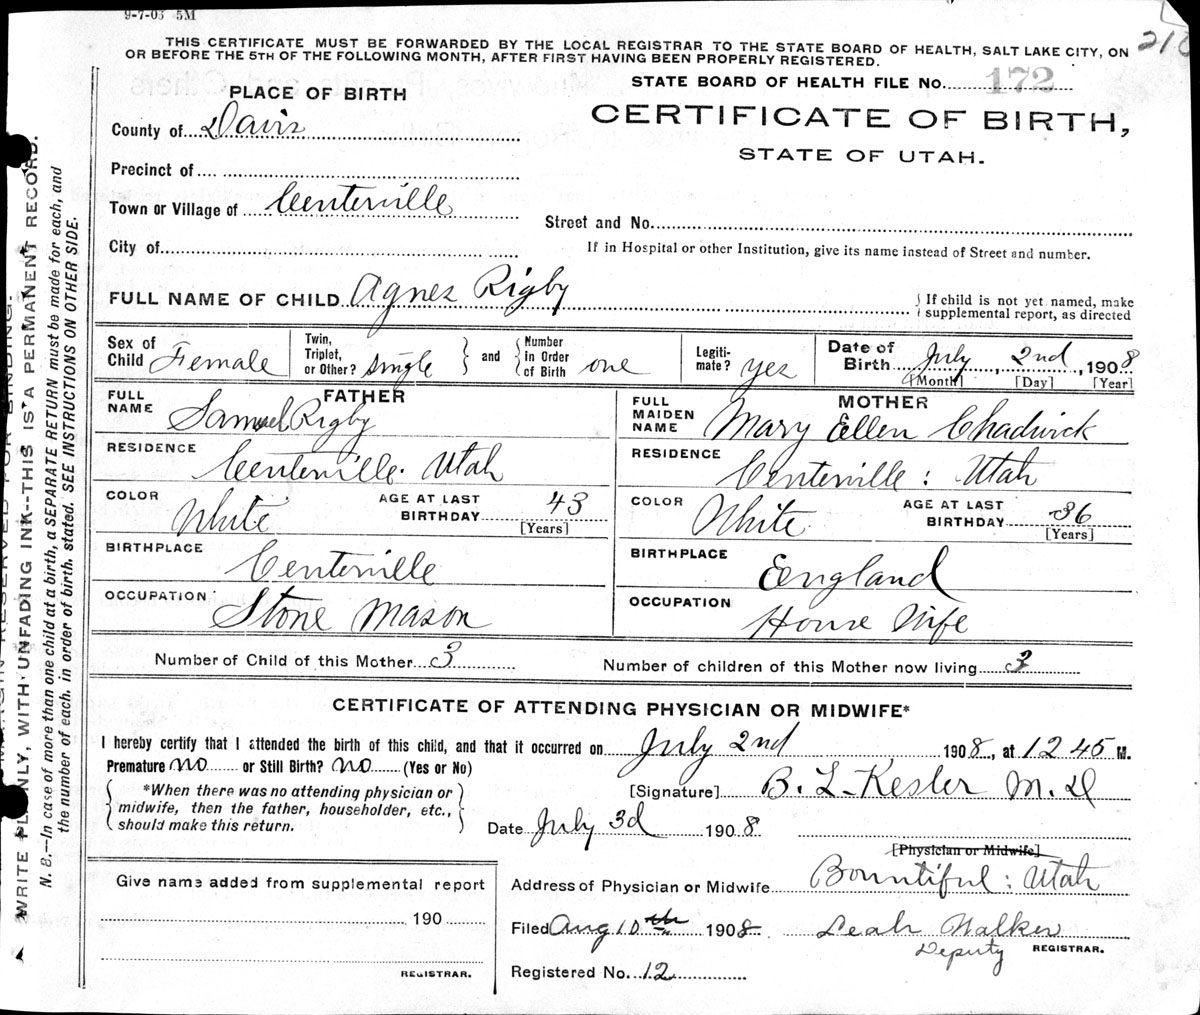 9-7-05 5M
THIS CERTIFICATE MUST BE FORWARDED BY THE LOCAL REGISTRAR TO THE STATE BOARD OF HEALTH, SALT LAKE CITY, ON
OR BEFORE THE 5TH OF THE FOLLOWING MONTH, AFTER FIRST HAVING BEEN PROPERLY REGISTERED.
STATE BOARD OF HEALTH FILE No. 172
PLACE OF BIRTH
CERTIFICATE OF BIRTH,
STATE OF UTAH.
County of Davis
Precinct of
Town or Village of Centerville
Street and No.
City of
If in Hospital or other Institution, give its name instead of Street and number.
FULL NAME OF CHILD Agnes Rigby
{ If child is not yet named, make
supplemental report, as directed
Sex of Child Female
Twin, Triplet, or Other? Single
and
Number in Order of Birth one
Legiti- mate? yes
Date of Birth July, 2nd, 1908
[Month] [Day] [Year]
FATHER
FULL NAME Samuel Rigby
RESIDENCE Centerville. Utah
COLOR White
AGE AT LAST BIRTHDAY 43
[Years]
BIRTHPLACE Centerville
OCCUPATION Stone Mason
MOTHER
FULL MAIDEN NAME Mary Ellen Chadwick
RESIDENCE Centerville: Utah
COLOR White
AGE AT LAST BIRTHDAY 36
[Years]
BIRTHPLACE England
OCCUPATION House Wife
Number of Child of this Mother 3
Number of children of this Mother now living 3
CERTIFICATE OF ATTENDING PHYSICIAN OR MIDWIFE*
I hereby certify that I attended the birth of this child, and that it occurred on July 2nd 1908, at 12 45 M.
Premature no or Still Birth? no (Yes or No)
*When there was no attending physician or
midwife, then the father, householder, etc.,
should make this return.
[Signature] B. L. Kesler M.D
Date July 3d 1908
[Physician or Midwife]
Address of Physician or Midwife Bountiful: Utah
Give name added from supplemental report
190
REGISTRAR.
Filed Aug 10th 1908 Leah Walker
Deputy REGISTRAR.
Registered No. 12
WRITE PLAINLY, WITH UNFADING INK--THIS IS A PERMANENT RECORD.
N. B.--In case of more than one child at a birth, a SEPARATE RETURN must be made for each, and
the number of each, in order of birth, stated. SEE INSTRUCTIONS ON OTHER SIDE.